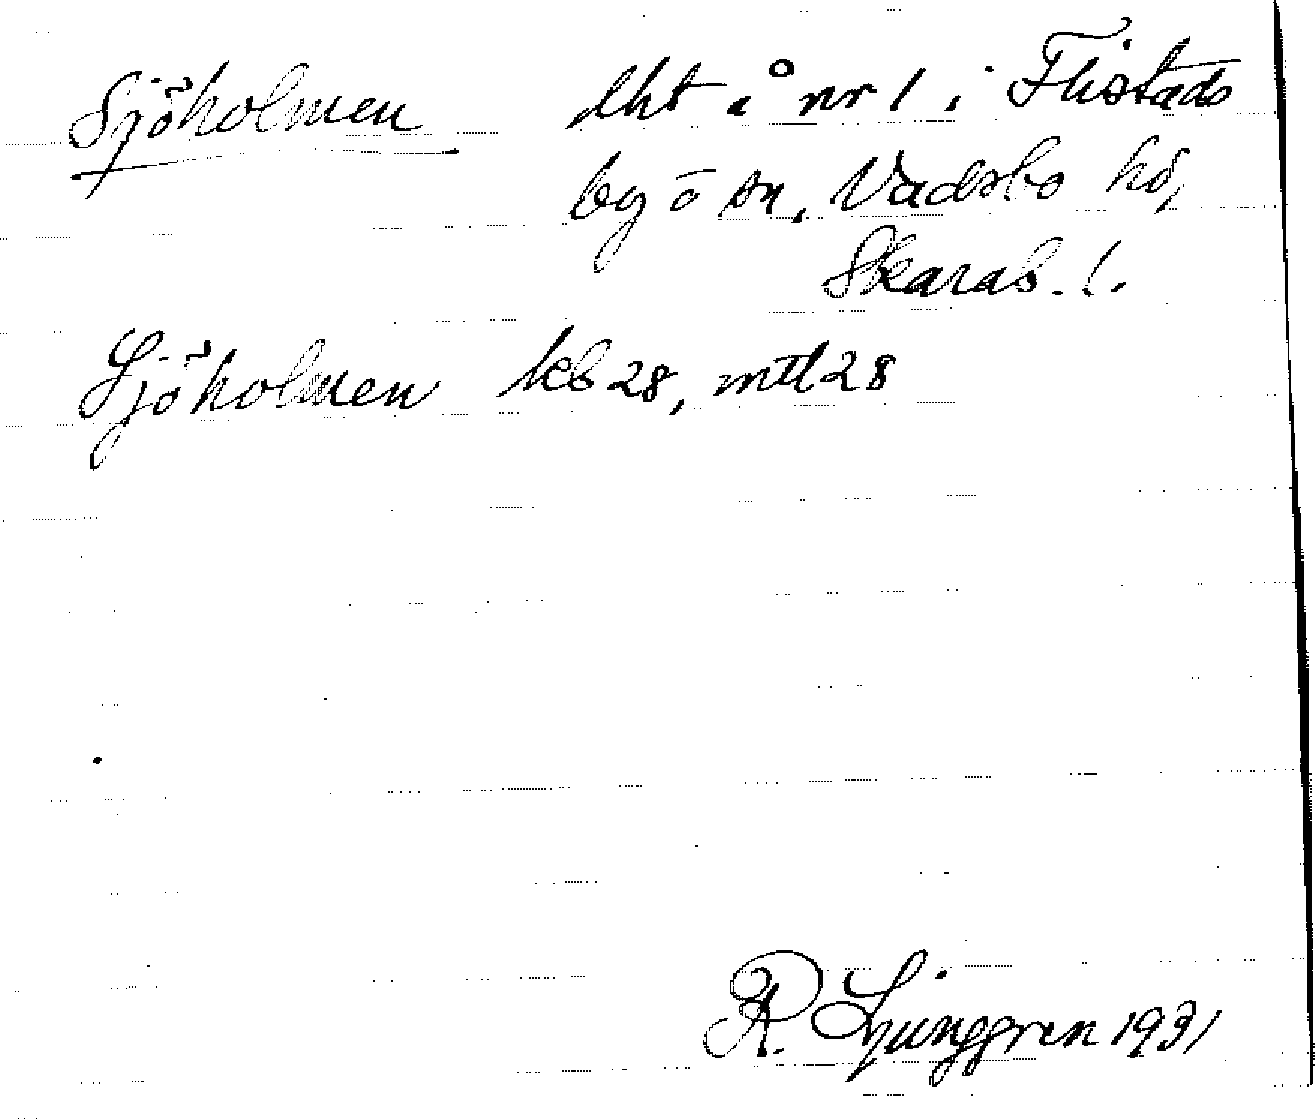 Sjöholmen lht å nr 1 i Flistads
by o sn, Vadsbo hd,
Skarab. l.
Sjöholmen kb 28, mtl 28
R. Ljunggren 1931